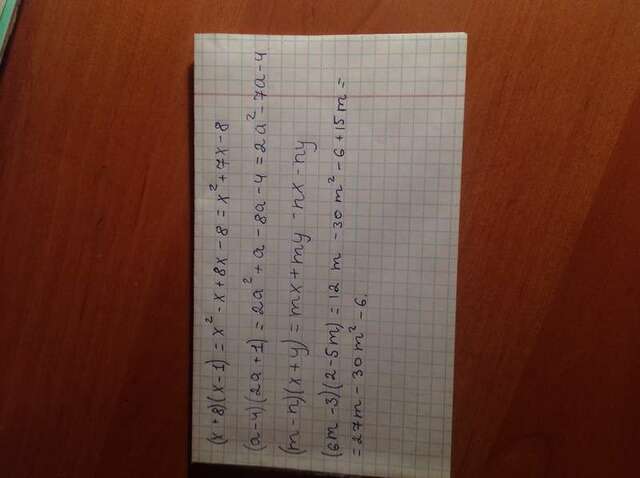 (x+8)(x-1) = x² - x + 8x - 8 = x² + 7x - 8
(a-4)(2a+1) = 2a² + a - 8a - 4 = 2a² - 7a - 4
(m-n)(x+y) = mx + my - nx - ny
(6m-3)(2-5m) = 12 m - 30 m² - 6 + 15 m =
= 27m - 30m² - 6.